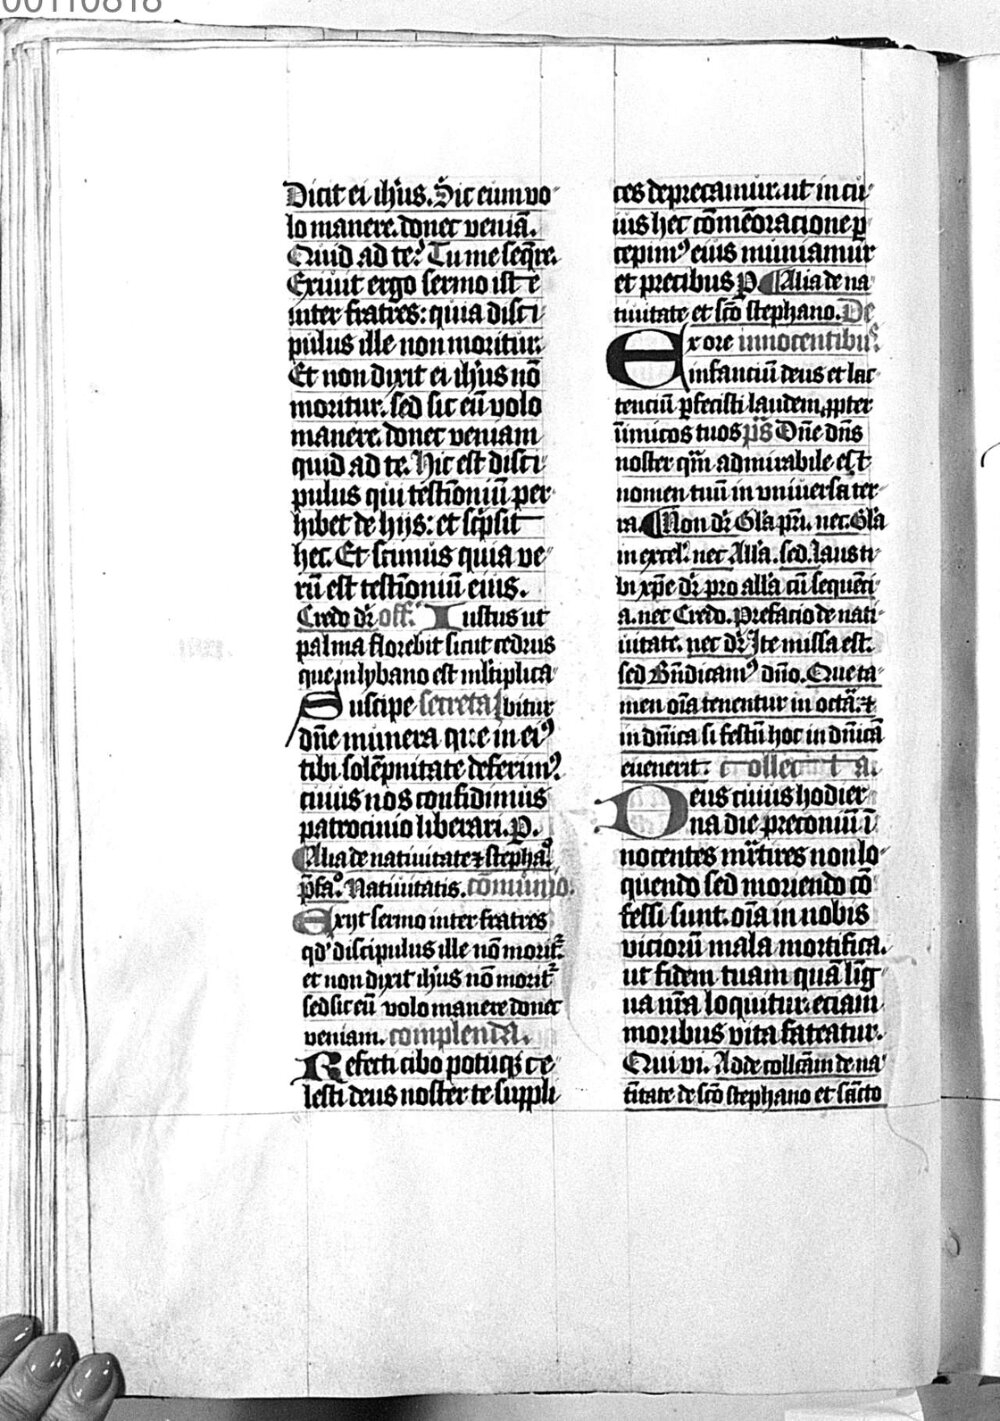 00110818
Dicit ei ih̄us. Sic eum vo
lo manere. donec veniā.
Quid ad te? Tu me seq̄re.
Exiuit ergo sermo iste
inter fratres: quia disci
pulus ille non moritur.
Et non dixit ei ih̄us nō
moritur. sed sic eū volo
manere. donec veniam
quid ad te. Hic est disci
pulus qui testīoniū per
hibet de hijs: et sc̄psit
hec. Et scimus quia ve
rū est testīoniū eius.
Credo dr̄ off. Iustus ut
palma florebit sicut cedrus
que in lybano est ml̄tiplica
Suscipe secreta bitur
dn̄e munera que in eiꝰ
tibi solēpnitate deferimꝰ
cuius nos confidimus
patrocinio liberari. P.
Alia de natiuitate ⁊ stephaͦ.
p̄faͦ. Natiuitatis. cōmunio.
Exijt sermo inter fratres
qd' discipulus ille nō morit᷑
et non dixit ih̄us nō morit᷑
sed sic eū volo manere donec
veniam. complenda.
Refecti cibo potuqꝫ ce
lesti deus noster te suppli
ces deprecamur. ut in cu
ius hec cōmēoracione ꝑ
cepimꝰ eius muniamur
et precibus P. Alia de na
tiuitate et sc̄o stephano. De
Ex ore innocentibus.
infanciū deus et lac
tenciū ꝑfecisti laudem ꝓpter
īimicos tuos p̄s Dn̄e dn̄s
noster qm̄ admirabile est
nomen tuū in vniuersa ter
ra. Non dr̄ Gl̄a pr̄i. nec. Gl̄a
in excel. nec All̄a. sed. Laus ti
bi xp̄e dr̄ pro all̄a cū sequēci
a. nec Credo. Prefacio de nati
uitate. nec dr̄ Ite missa est.
sed Bn̄dicamꝰ dn̄o. Que ta
men oīa tenentur in octā. ⁊
in dn̄ica si festū hoc in dn̄icā
euenerit. Collecta.
Deus cuius hodier
na die preconiū ī
nocentes mr̄tires non lo
quendo sed moriendo cō
fessi sunt. oīa in nobis
viciorū mala mortifica.
ut fidem tuam quā līg
ua nr̄a loquitur. eciam
moribus vita fateatur.
Qui vi. Adde collc̄am de na
t̄itate de sc̄o stephano et sācto